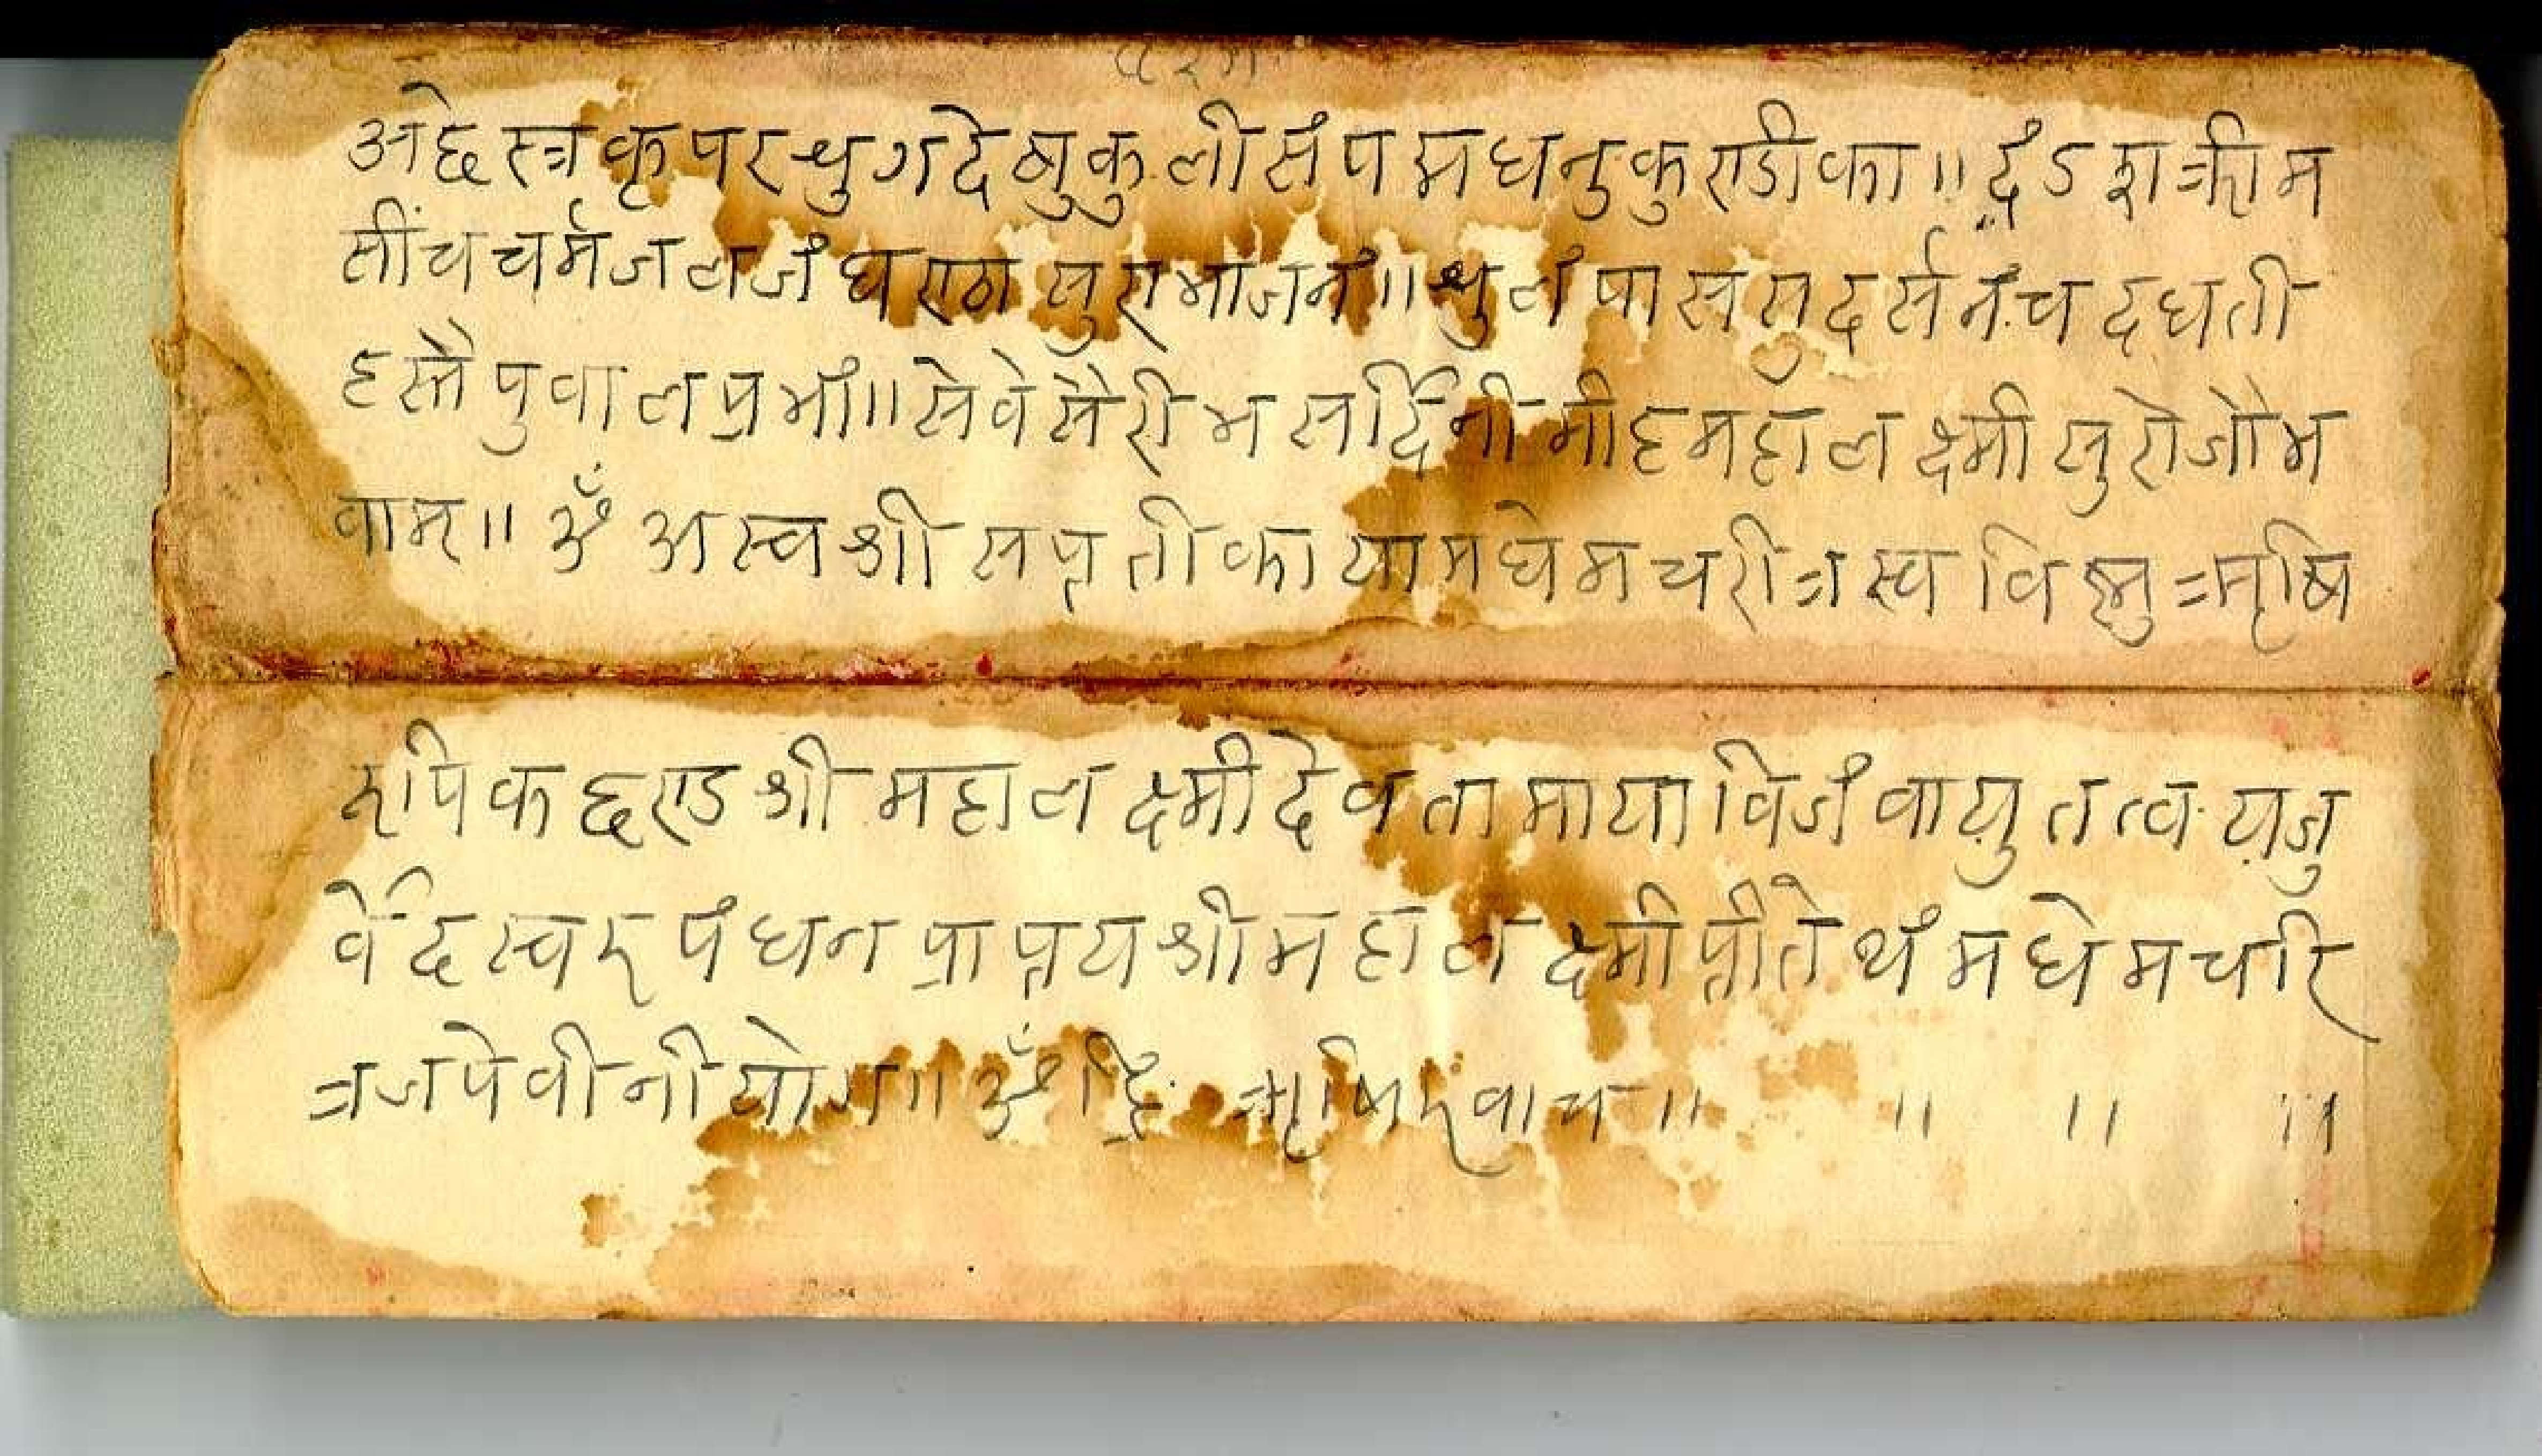 अछेस्त्रकृपरथुगदेषुकुलीसंपमधनुकुराडीका॥ दंडशक्तीम
सींचचर्मजलजंघराठासुराभाजनं॥थुलंपाससुदर्सनंचदधती
हस्तैपुवालप्रभां॥सेवेसैरीभमर्दिनीमीहमहालक्ष्मीसुरोजौभ
वाम॥ ॐ अस्वश्रीसप्ततीकायामधेमचरीत्रस्वविष्णुऋषि
रूपिकछराडश्रीमहालक्ष्मीदेवतामायाविजंवायुतत्वयजु
र्वेदस्वरुपंधनप्राप्तयश्रीमहालक्ष्मीप्रीतेथंमधेमचरि
त्रजपेवीनीयोग॥ ॐह्रिं ऋषिरुवाच॥ ॥ ॥ ॥